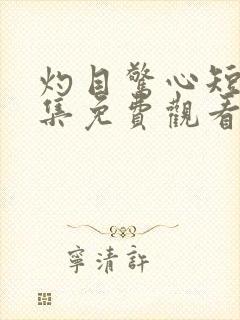 灼目驚心短
集免費觀看
寧清許